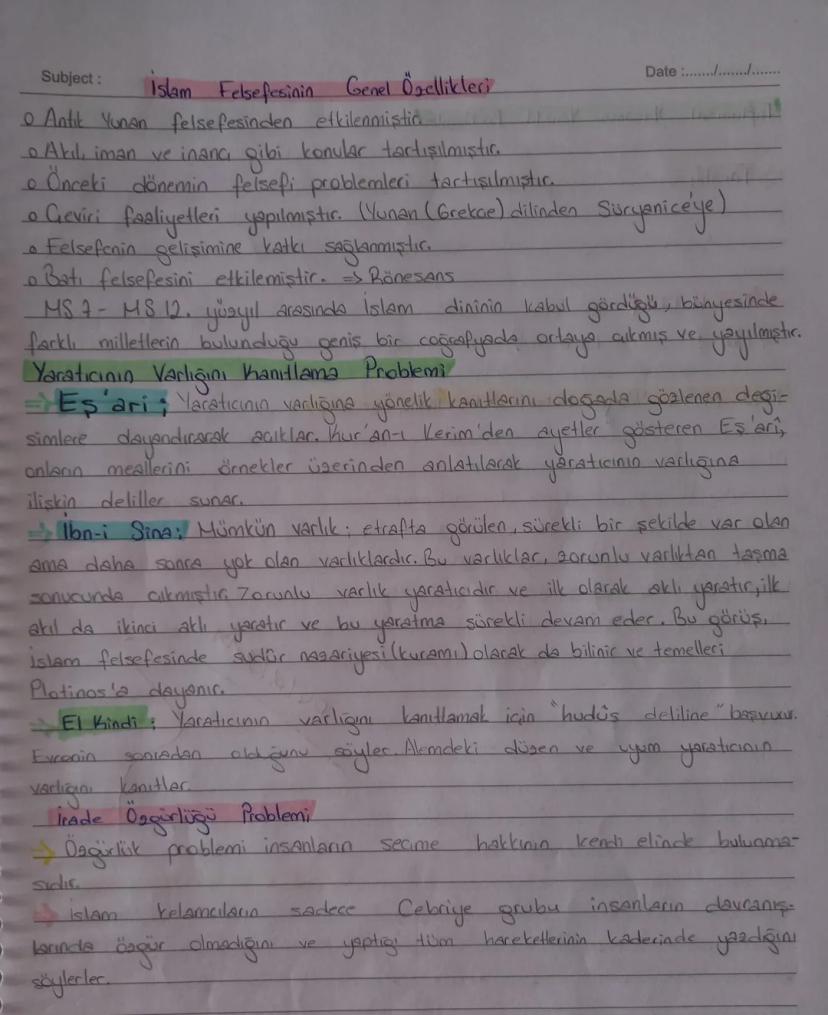 Subject : İslam Felsefesinin Genel Özellikleri Date :......./......./.......
o Antik Yunan felsefesinden etkilenmiştir.
o Akıl, iman ve inanç gibi konular tartışılmıştır.
o Önceki dönemin felsefi problemleri tartışılmıştır.
o Çeviri faaliyetleri yapılmıştır. (Yunan (Grekçe) dilinden Süryanice'ye)
o Felsefenin gelişimine katkı sağlanmıştır.
o Batı felsefesini etkilemiştir. => Rönesans
MS 7 - MS 12. yüzyıl arasında İslam dininin kabul gördüğü, bünyesinde
farklı milletlerin bulunduğu geniş bir coğrafyada ortaya çıkmış ve yayılmıştır.
Yaratıcının Varlığını Kanıtlama Problemi
=> Eş'ari ; Yaratıcının varlığına yönelik kanıtlarını doğada gözlenen deği-
şimlere dayandıracak açıklar. Kur'an-ı Kerim'den ayetler gösteren Eş'ari,
onların meallerini örnekler üzerinden anlatılarak yaratıcının varlığına
ilişkin deliller sunar.
=> İbn-i Sina; Mümkün varlık ; etrafta görülen, sürekli bir şekilde var olan
ama daha sonra yok olan varlıklardır. Bu varlıklar, zorunlu varlıktan taşma
sonucunda çıkmıştır. Zorunlu varlık yaratıcıdır ve ilk olarak aklı yaratır, ilk
akıl da ikinci aklı yaratır ve bu yaratma sürekli devam eder. Bu görüş,
İslam felsefesinde sudûr nazariyesi (kuramı) olarak da bilinir ve temelleri
Plotinos'a dayanır.
=> El Kindi ; Yaratıcının varlığını kanıtlamak için "hudûs deliline" başvurur.
Evrenin sonradan olduğunu söyler. Alemdeki düzen ve uyum yaratıcının
varlığını kanıtlar.
İrade Özgürlüğü Problemi
=> Özgürlük problemi insanların seçme hakkının kendi elinde bulunma-
sıdır.
=> İslam kelamcıların sadece Cebriye grubu insanların davranış-
larında özgür olmadığını ve yaptığı tüm hareketlerinin kaderinde yazdığını
söylerler.